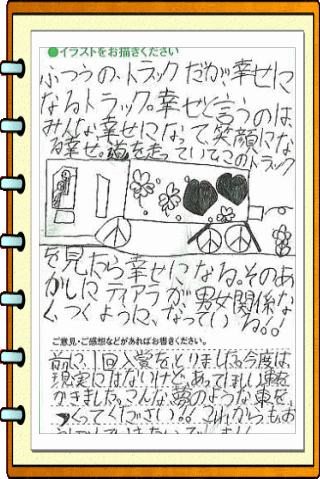 ●イラストをお描きください
ふつうの、トラックだが幸せに
なるトラック。幸せと言うのは、
みんな幸せになって、笑顔にな
る幸せ。道を走っていて、このトラック
を見たら幸せになる。そのあ
かしにティアラが男女関係な
くつくように、なっている。。!
ご意見・ご感想などがあればお書きください。
前に、1回入賞をとりました。今度は
現実にはないけど、あってほしい車を
かきました。こんな夢のような車を、
つくってください!! これからもお